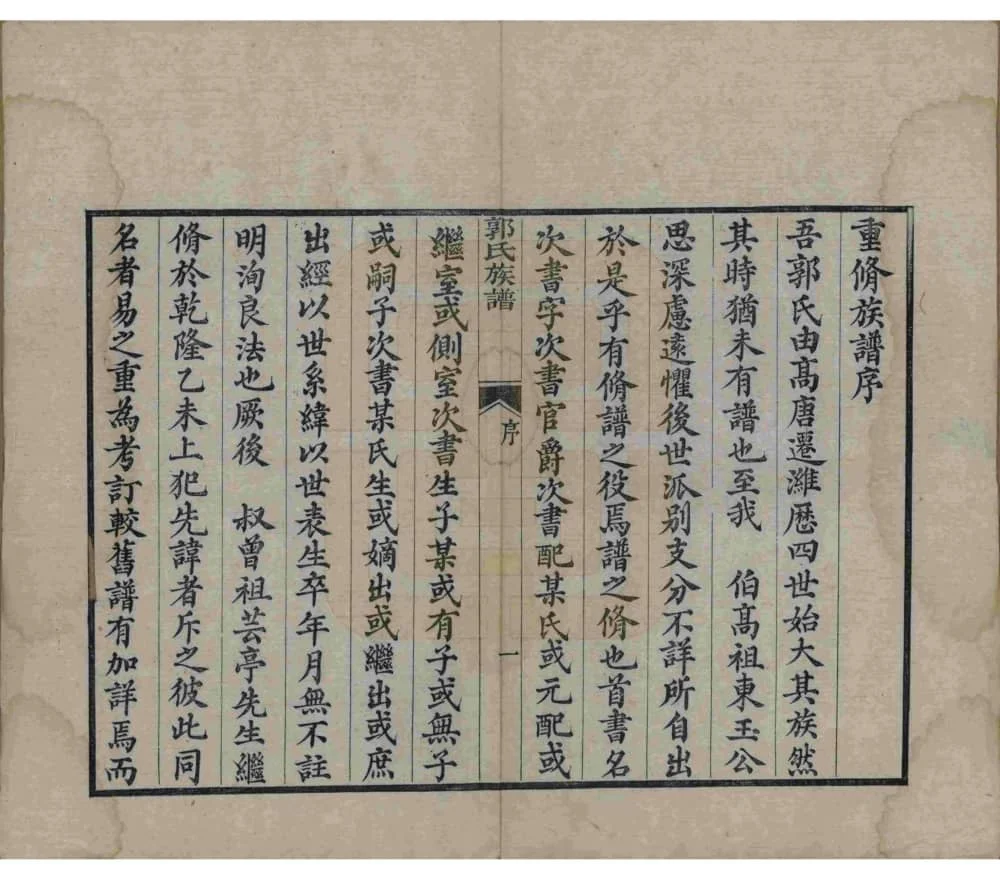 重脩族譜序
吾郭氏由高唐遷濰歷四世始大其族然
其時猶未有譜也至我　伯高祖東玉公
思深慮遠懼後世派别支分不詳所自出
於是乎有脩譜之役焉譜之脩也首書名
次書字次書官爵次書配某氏或元配或
郭氏族譜　序　一
繼室或側室次書生子某或有子或無子
或嗣子次書某氏生或嫡出或繼出或庶
出經以世系緯以世表生卒年月無不註
明洵良法也厥後　叔曾祖芸亭先生繼
脩於乾隆乙未上犯先諱者斥之彼此同
名者易之重為考訂較舊譜有加詳焉而